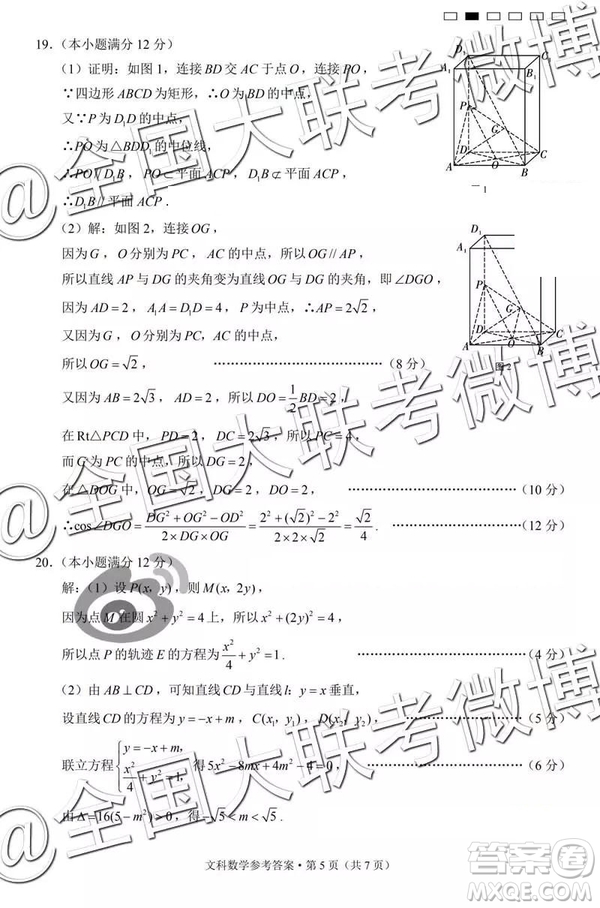 19.（本小题满分 12 分）
（1）证明：如图 1，连接 BD 交 AC 于点 O，连接 PO，
∵四边形 ABCD 为矩形，∴O 为 BD 的中点，
又∵P 为 D₁D 的中点，
∴PO 为△BDD₁ 的中位线，
∴PO∥D₁B，PO⊂平面 ACP，D₁B⊄平面 ACP，
∴D₁B∥平面 ACP．
（2）解：如图 2，连接 OG，
因为 G，O 分别为 PC，AC 的中点，所以 OG∥AP，
所以直线 AP 与 DG 的夹角变为直线 OG 与 DG 的夹角，即∠DGO，
因为 AD=2，A₁A=D₁D=4，P 为中点，∴AP=2√2，
又因为 G，O 分别为 PC，AC 的中点，
所以 OG=√2，……………………（8 分）
又因为 AB=2√3，AD=2，所以 DO=1/2BD=2，
在 Rt△PCD 中，PD=2，DC=2√3，所以 PC=4，
而 G 为 PC 的中点，所以 DG=2，
在△DOG 中，OG=√2，DG=2，DO=2，……………………（10 分）
∴cos∠DGO=(DG²+OG²−OD²)/(2×DG×OG)=(2²+(√2)²−2²)/(2×2×√2)=√2/4．……………………（12 分）
20.（本小题满分 12 分）
解：（1）设 P(x，y)，则 M(x，2y)，
因为点 M 在圆 x²+y²=4 上，所以 x²+(2y)²=4，
所以点 P 的轨迹 E 的方程为 x²/4+y²=1．……………………（4 分）
（2）由 AB⊥CD，可知直线 CD 与直线 l：y=x 垂直，
设直线 CD 的方程为 y=−x+m，C(x₁，y₁)，D(x₂，y₂)，……………………（5 分）
联立方程{y=−x+m，x²/4+y²=1，得 5x²−8mx+4m²−4=0，……………………（6 分）
由 Δ=16(5−m²)>0，得−√5<m<√5．
文科数学参考答案·第 5 页（共 7 页）
@全国大联考微博
@全国大联考微博
答案圈